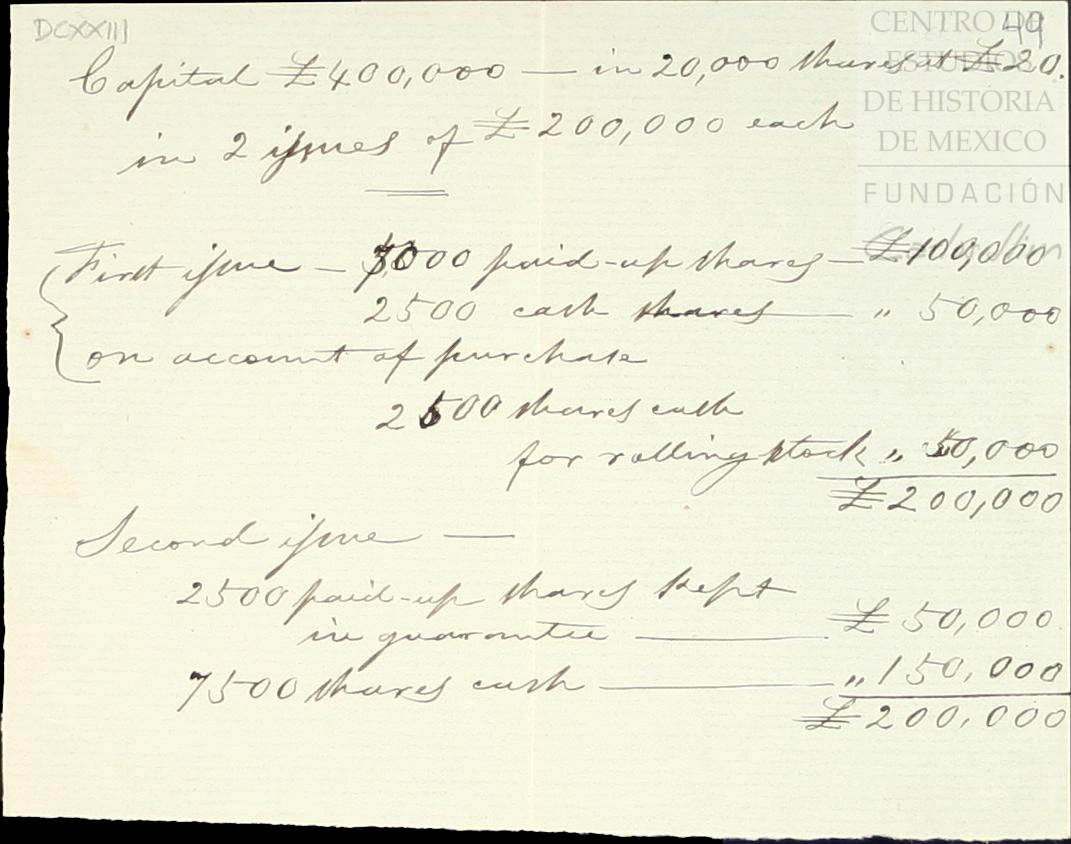 DCXXIII
49
CENTRO DE
ESTUDIOS
DE HISTORIA
DE MEXICO
FUNDACIÓN
Capital £400,000 — in 20,000 shares at £20.
in 2 issues of £200,000 each
First issue — 5000 paid-up shares — £100,000
2500 cash shares — " 50,000
on account of purchase
2500 shares cash
for rolling stock " 50,000
£200,000
Second issue —
2500 paid-up shares kept
in guarantee — £50,000
7500 shares cash — " 150,000
£200,000